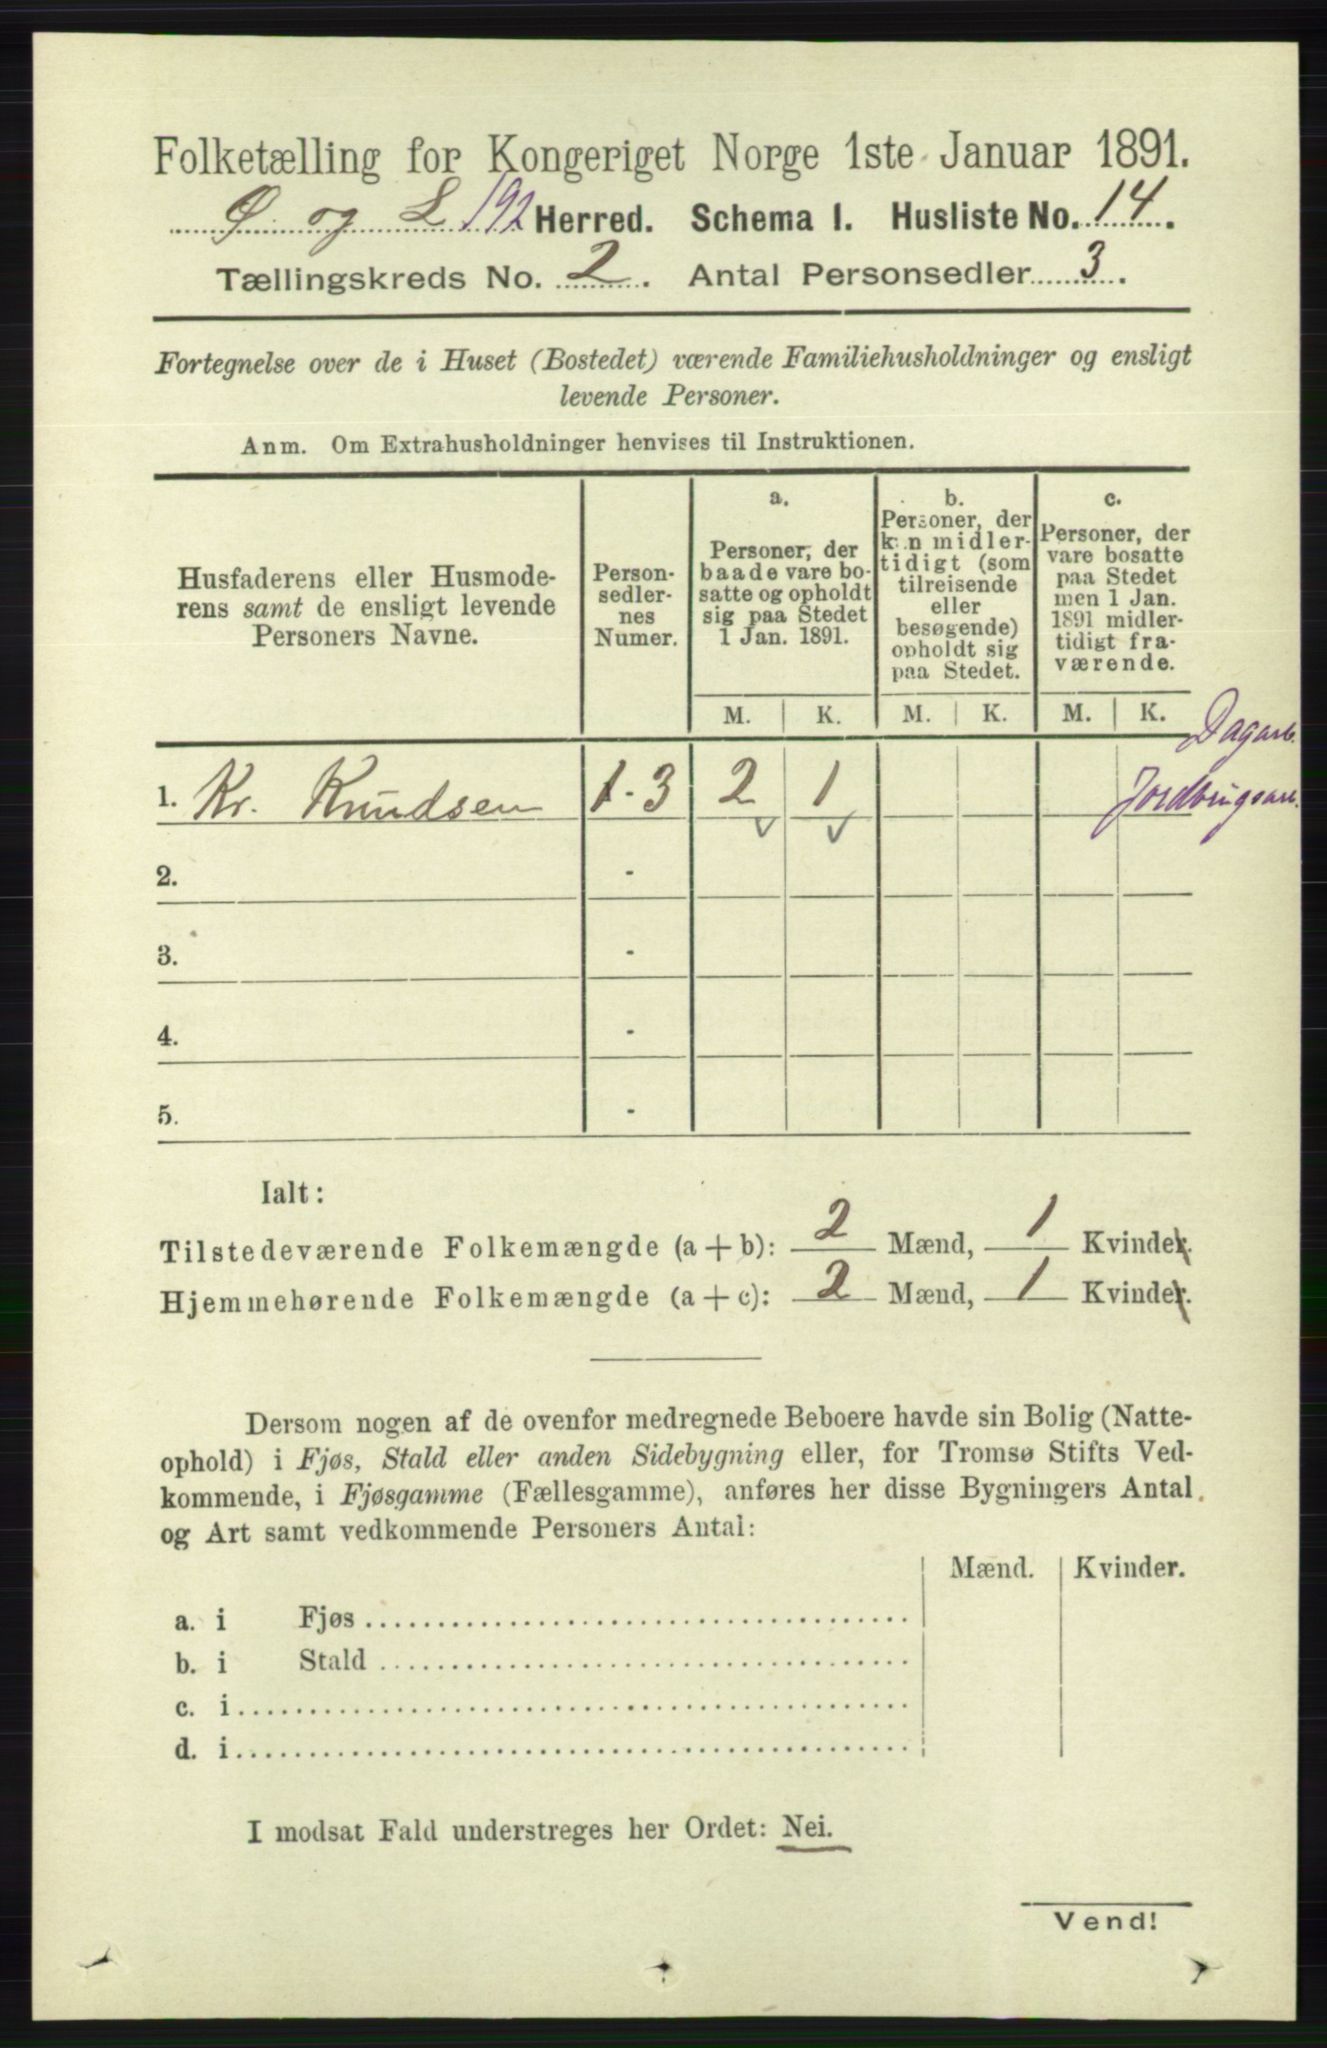 Folketælling for Kongeriget Norge 1ste Januar 1891.
Ø. og L 192 Herred. Schema 1. Husliste No. 14.
Tællingskreds No. 2. Antal Personsedler 3.
Fortegnelse over de i Huset (Bostedet) værende Familiehusholdninger og ensligt
levende Personer.
Anm. Om Extrahusholdninger henvises til Instruktionen.
Husfaderens eller Husmode-
rens samt de ensligt levende
Personers Navne.
Person-
sedler-
nes
Numer.
a.
Personer, der
baade vare bo-
satte og opholdt
sig paa Stedet
1 Jan. 1891.
b.
Personer, der
kun midler-
tidigt (som
tilreisende
eller
besøgende)
opholdt sig
paa Stedet.
c.
Personer, der
vare bosatte
paa Stedet
men 1 Jan.
1891 midler-
tidigt fra-
værende.
M. K. M. K. M. K.
Dagarb.
1. Kr. Knudsen 1 - 3 2 1 Jordbrugsarb.
2. -
3. -
4. -
5. -
Ialt:
Tilstedeværende Folkemængde (a + b): 2 Mænd, 1 Kvinder.
Hjemmehørende Folkemængde (a + c): 2 Mænd, 1 Kvinder.
Dersom nogen af de ovenfor medregnede Beboere havde sin Bolig (Natte-
ophold) i Fjøs, Stald eller anden Sidebygning eller, for Tromsø Stifts Ved-
kommende, i Fjøsgamme (Fællesgamme), anføres her disse Bygningers Antal
og Art samt vedkommende Personers Antal:
Mænd. Kvinder.
a. i Fjøs
b. i Stald
c. i
d. i
I modsat Fald understreges her Ordet: Nei.
Vend!